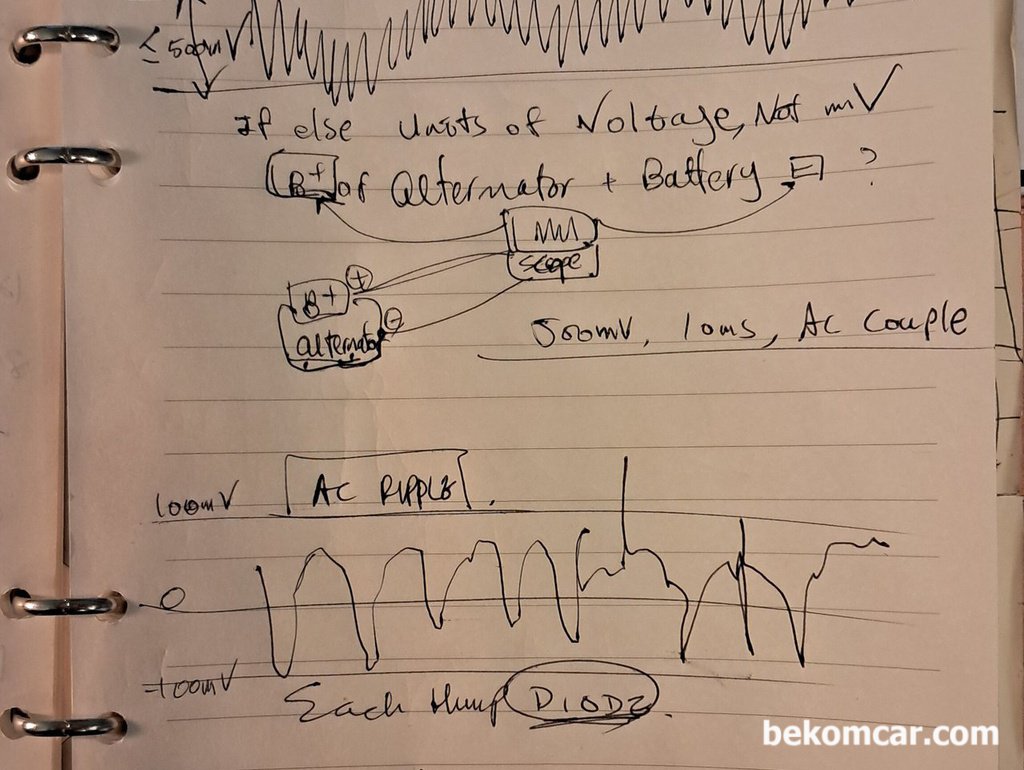 ≤ 500mV
If else units of Voltage, Not mV
B+ of alternator + Battery ⊟ ?
scope
B+ ⊕
alternator ⊖
500mV, 10ms, AC Couple
100mV AC RIPPLE.
0
-100mV
Each Hump DIODE.
bekomcar.com